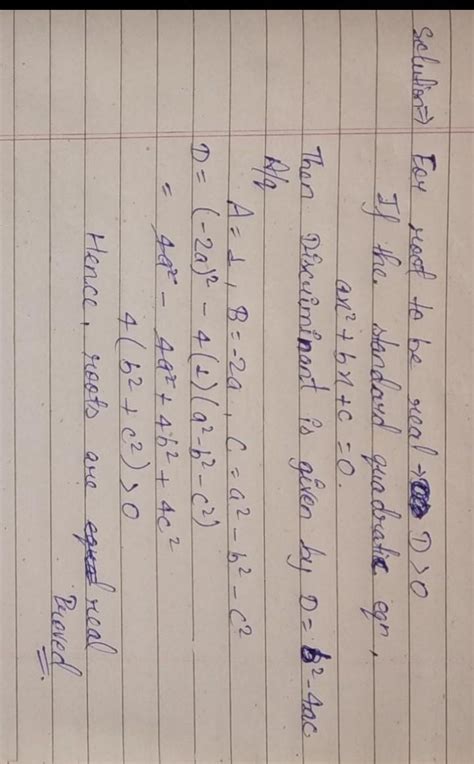 Solution⇒ For root to be real → D>0
If the standard quadratic eqn,
ax²+bx+c=0.
Then Discriminant is given by D= b²-4ac
A/q
A=1, B=-2a, C=a²-b²-c²
D= (-2a)²-4(1)(a²-b²-c²)
= 4a²-4a²+4b²+4c²
4(b²+c²)>0
Hence, roots are real
Proved.